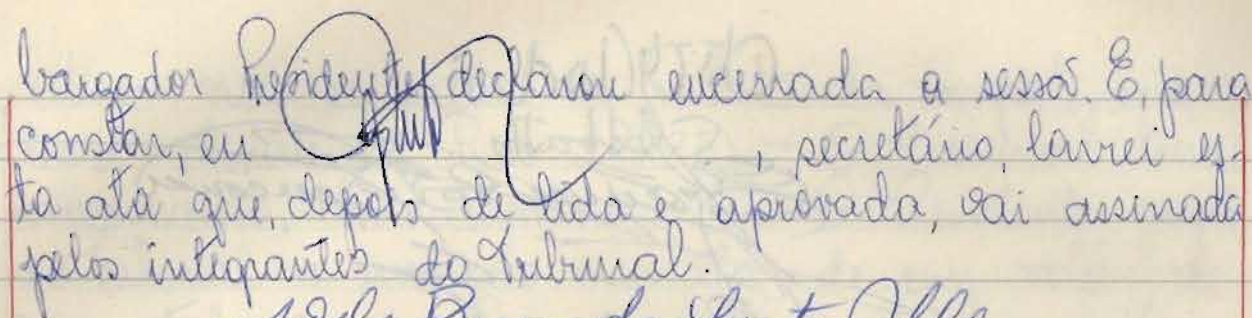 bargador Presidente declarou encerrada a sessão. E, para
constar, eu , secretário, lavrei es-
ta ata que, depois de lida e aprovada, vai assinada
pelos integrantes do Tribunal.